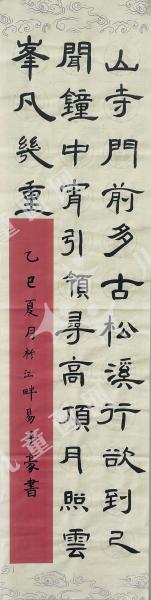 山寺門前多古松溪行欲到已
聞鐘中宵引領尋高頂月照雲
峯凡幾重
乙巳夏月於江畔易 豪書